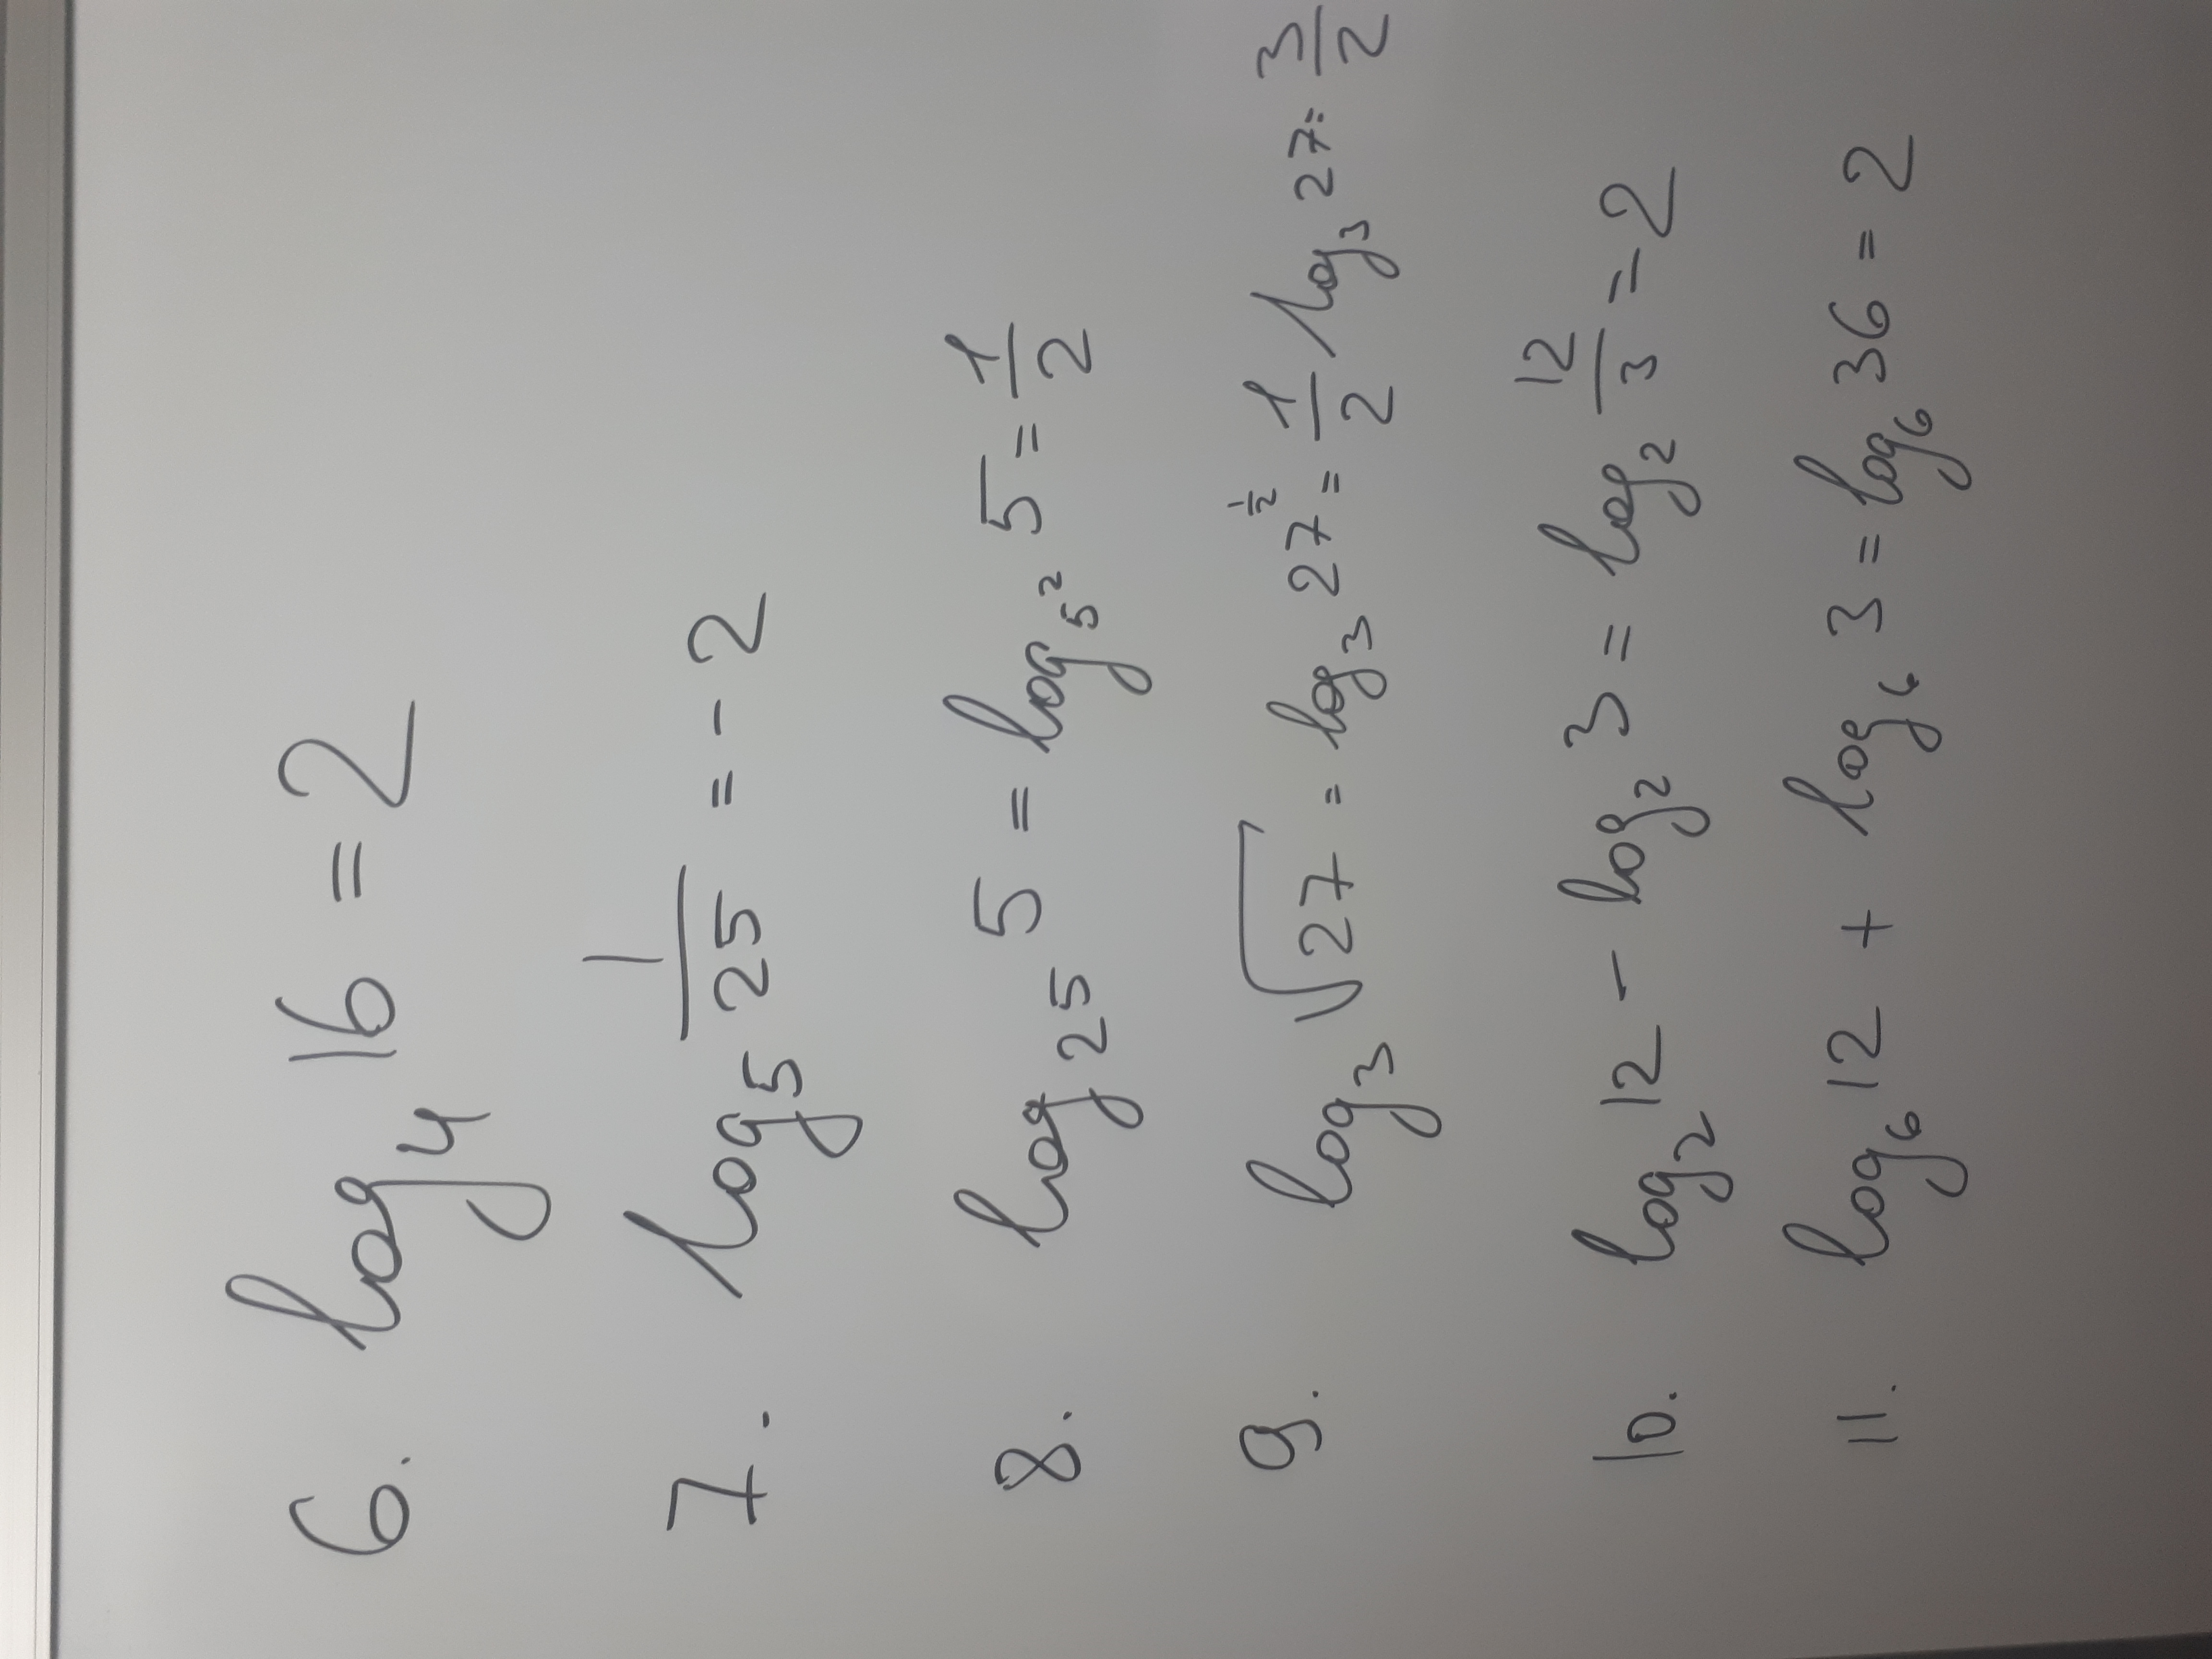 6. log₄ 16 = 2
7. log₅ 1/25 = -2
8. log₂₅ 5 = log₅² 5 = 1/2
9. log₃ √27 = log₃ 27^(1/2) = 1/2 log₃ 27 = 3/2
10. log₂ 12 - log₂ 3 = log₂ 12/3 = 2
11. log₆ 12 + log₆ 3 = log₆ 36 = 2